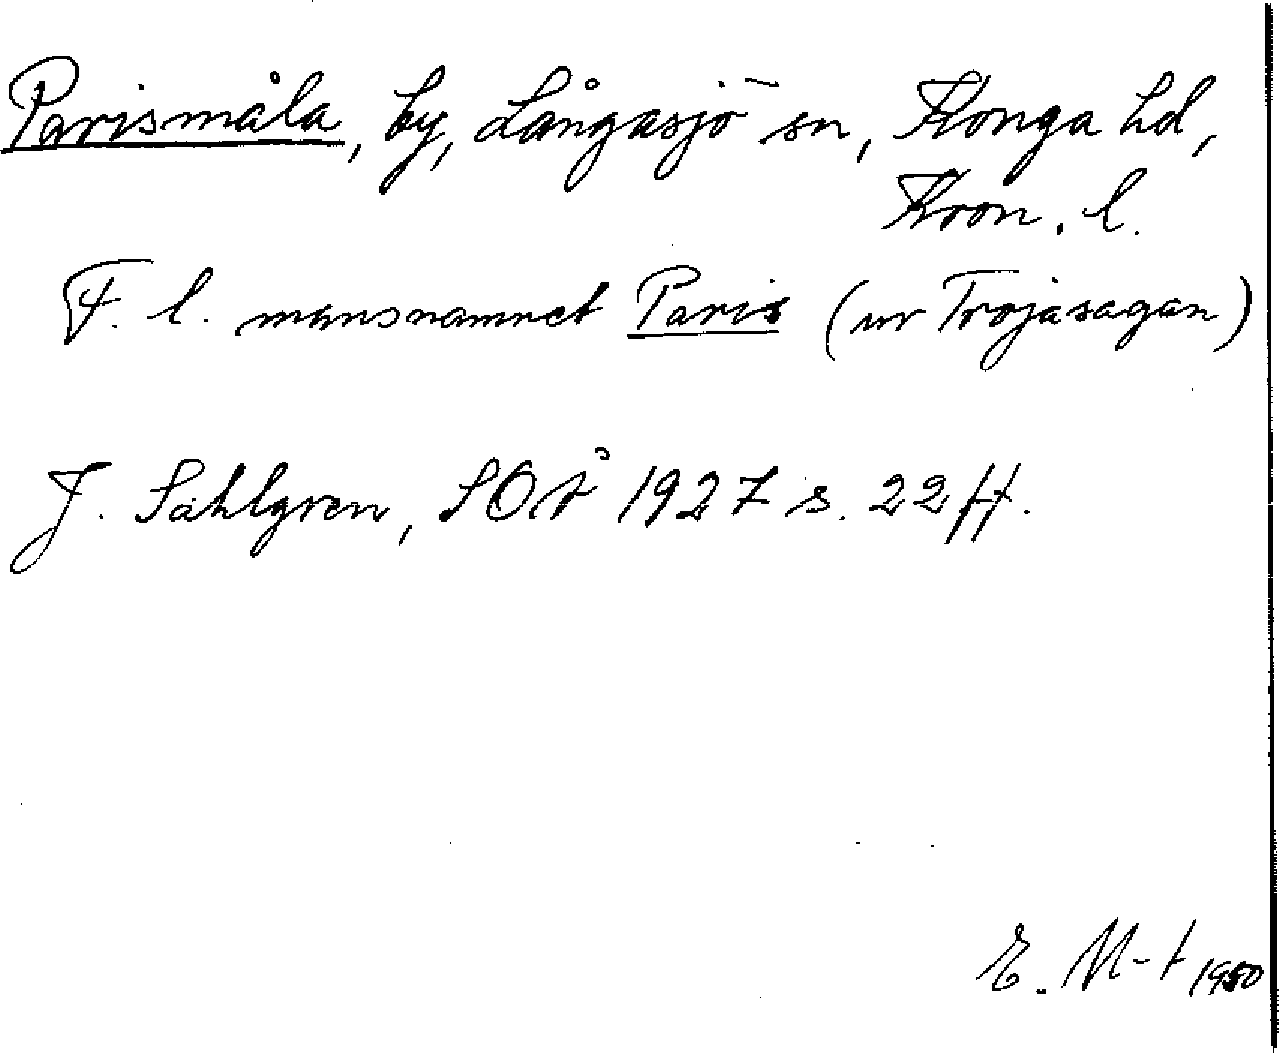 Parismåla, by, Långasjö sn, Konga hd,
Kron. l.
F. l. mansnamnet Paris (ur Trojasagan)
J. Sahlgren, SOÅ 1927 s. 22 ff.
E. M-t 1950